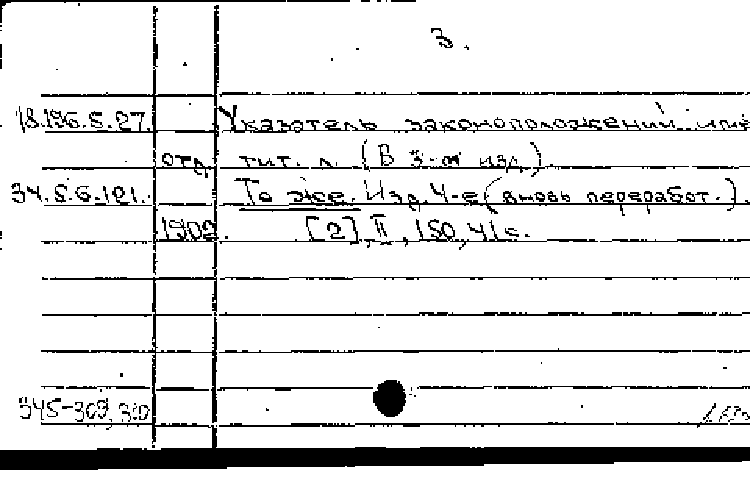 3.
18.196.5.27. Указатель законоположений
отд. тит. л. (В 3-м изд.)
34.5.6.121. То же. Изд. 4-е (вновь переработ.).
1902. [2], II, 150, 41 с.
345-309, 310